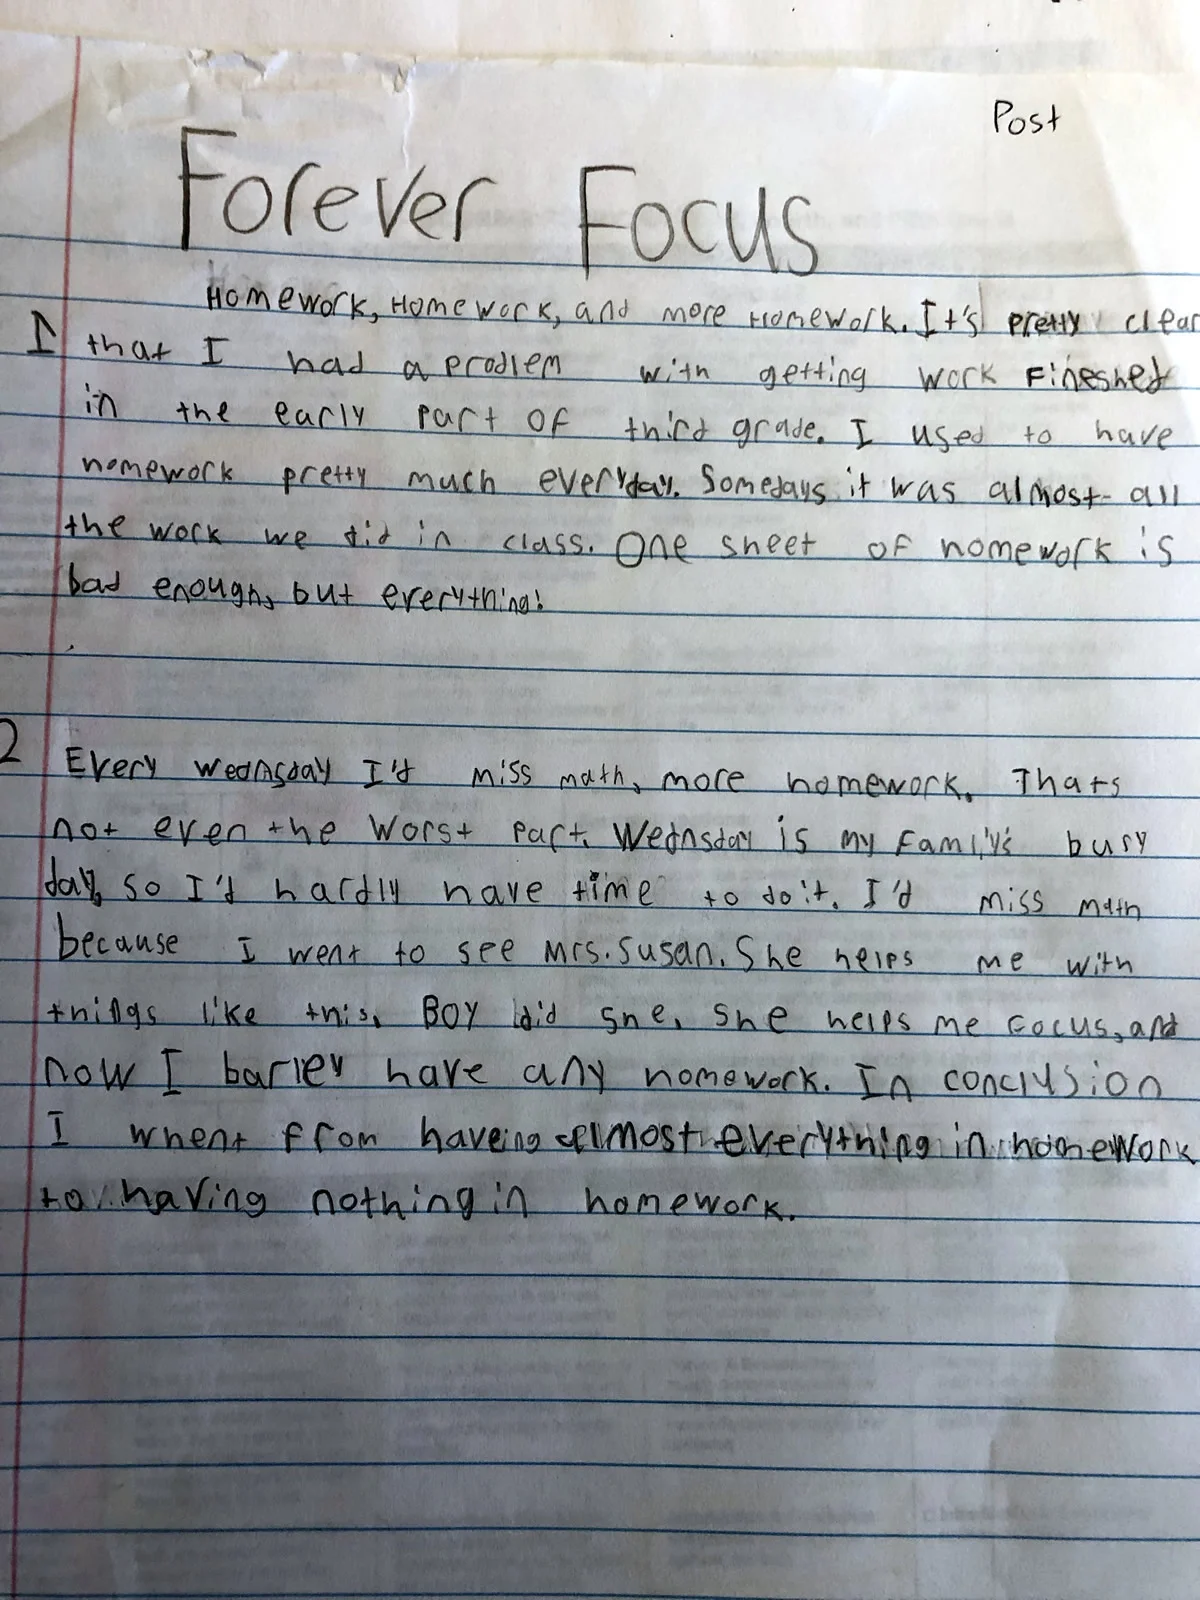 Post
Forever Focus
Homework, Homework, and more Homework. It's pretty clear
1 that I had a problem with getting work Fineshed
in the early part of third grade. I used to have
homework pretty much everyday. Somedays it was almost all
the work we did in class. One sheet of homework is
bad enough, but everything!
2 Every wednsday I'd miss math, more homework. Thats
not even the worst part. Wednsday is my family's busy
day, so I'd hardly have time to do it. I'd miss math
because I went to see Mrs. Susan. She helps me with
things like this. BOY did she. She helps me focus, and
now I barley have any homework. In conclusion
I whent from haveing almost everything in homework
to having nothing in homework.